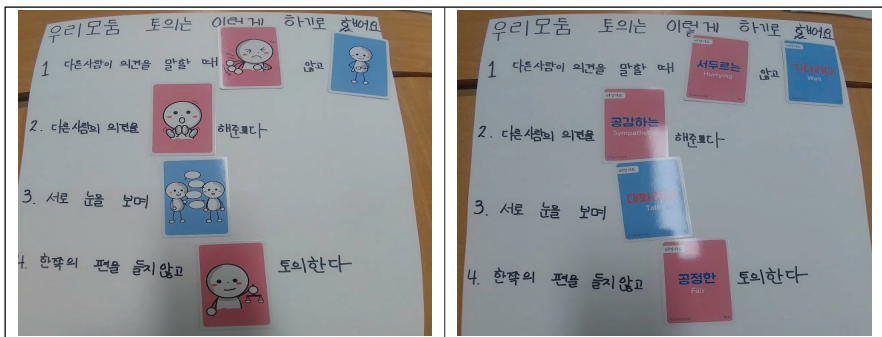 우리모둠 토의는 이렇게 하기로 했어요
1 다른사람이 의견을 말할 때 않고
2. 다른사람의 의견을 해준다
3. 서로 눈을 보며
4. 한쪽의 편을 들지않고 토의한다
우리모둠 토의는 이렇게 하기로 했어요
1 다른사람이 의견을 말할 때 서두르는 Hurrying 않고 기다리다 Wait
2. 다른사람의 의견을 공감하는 Sympathetic 해준다
3. 서로 눈을 보며 대화하다 Talk
4. 한쪽의 편을 들지않고 공정한 Fair 토의한다